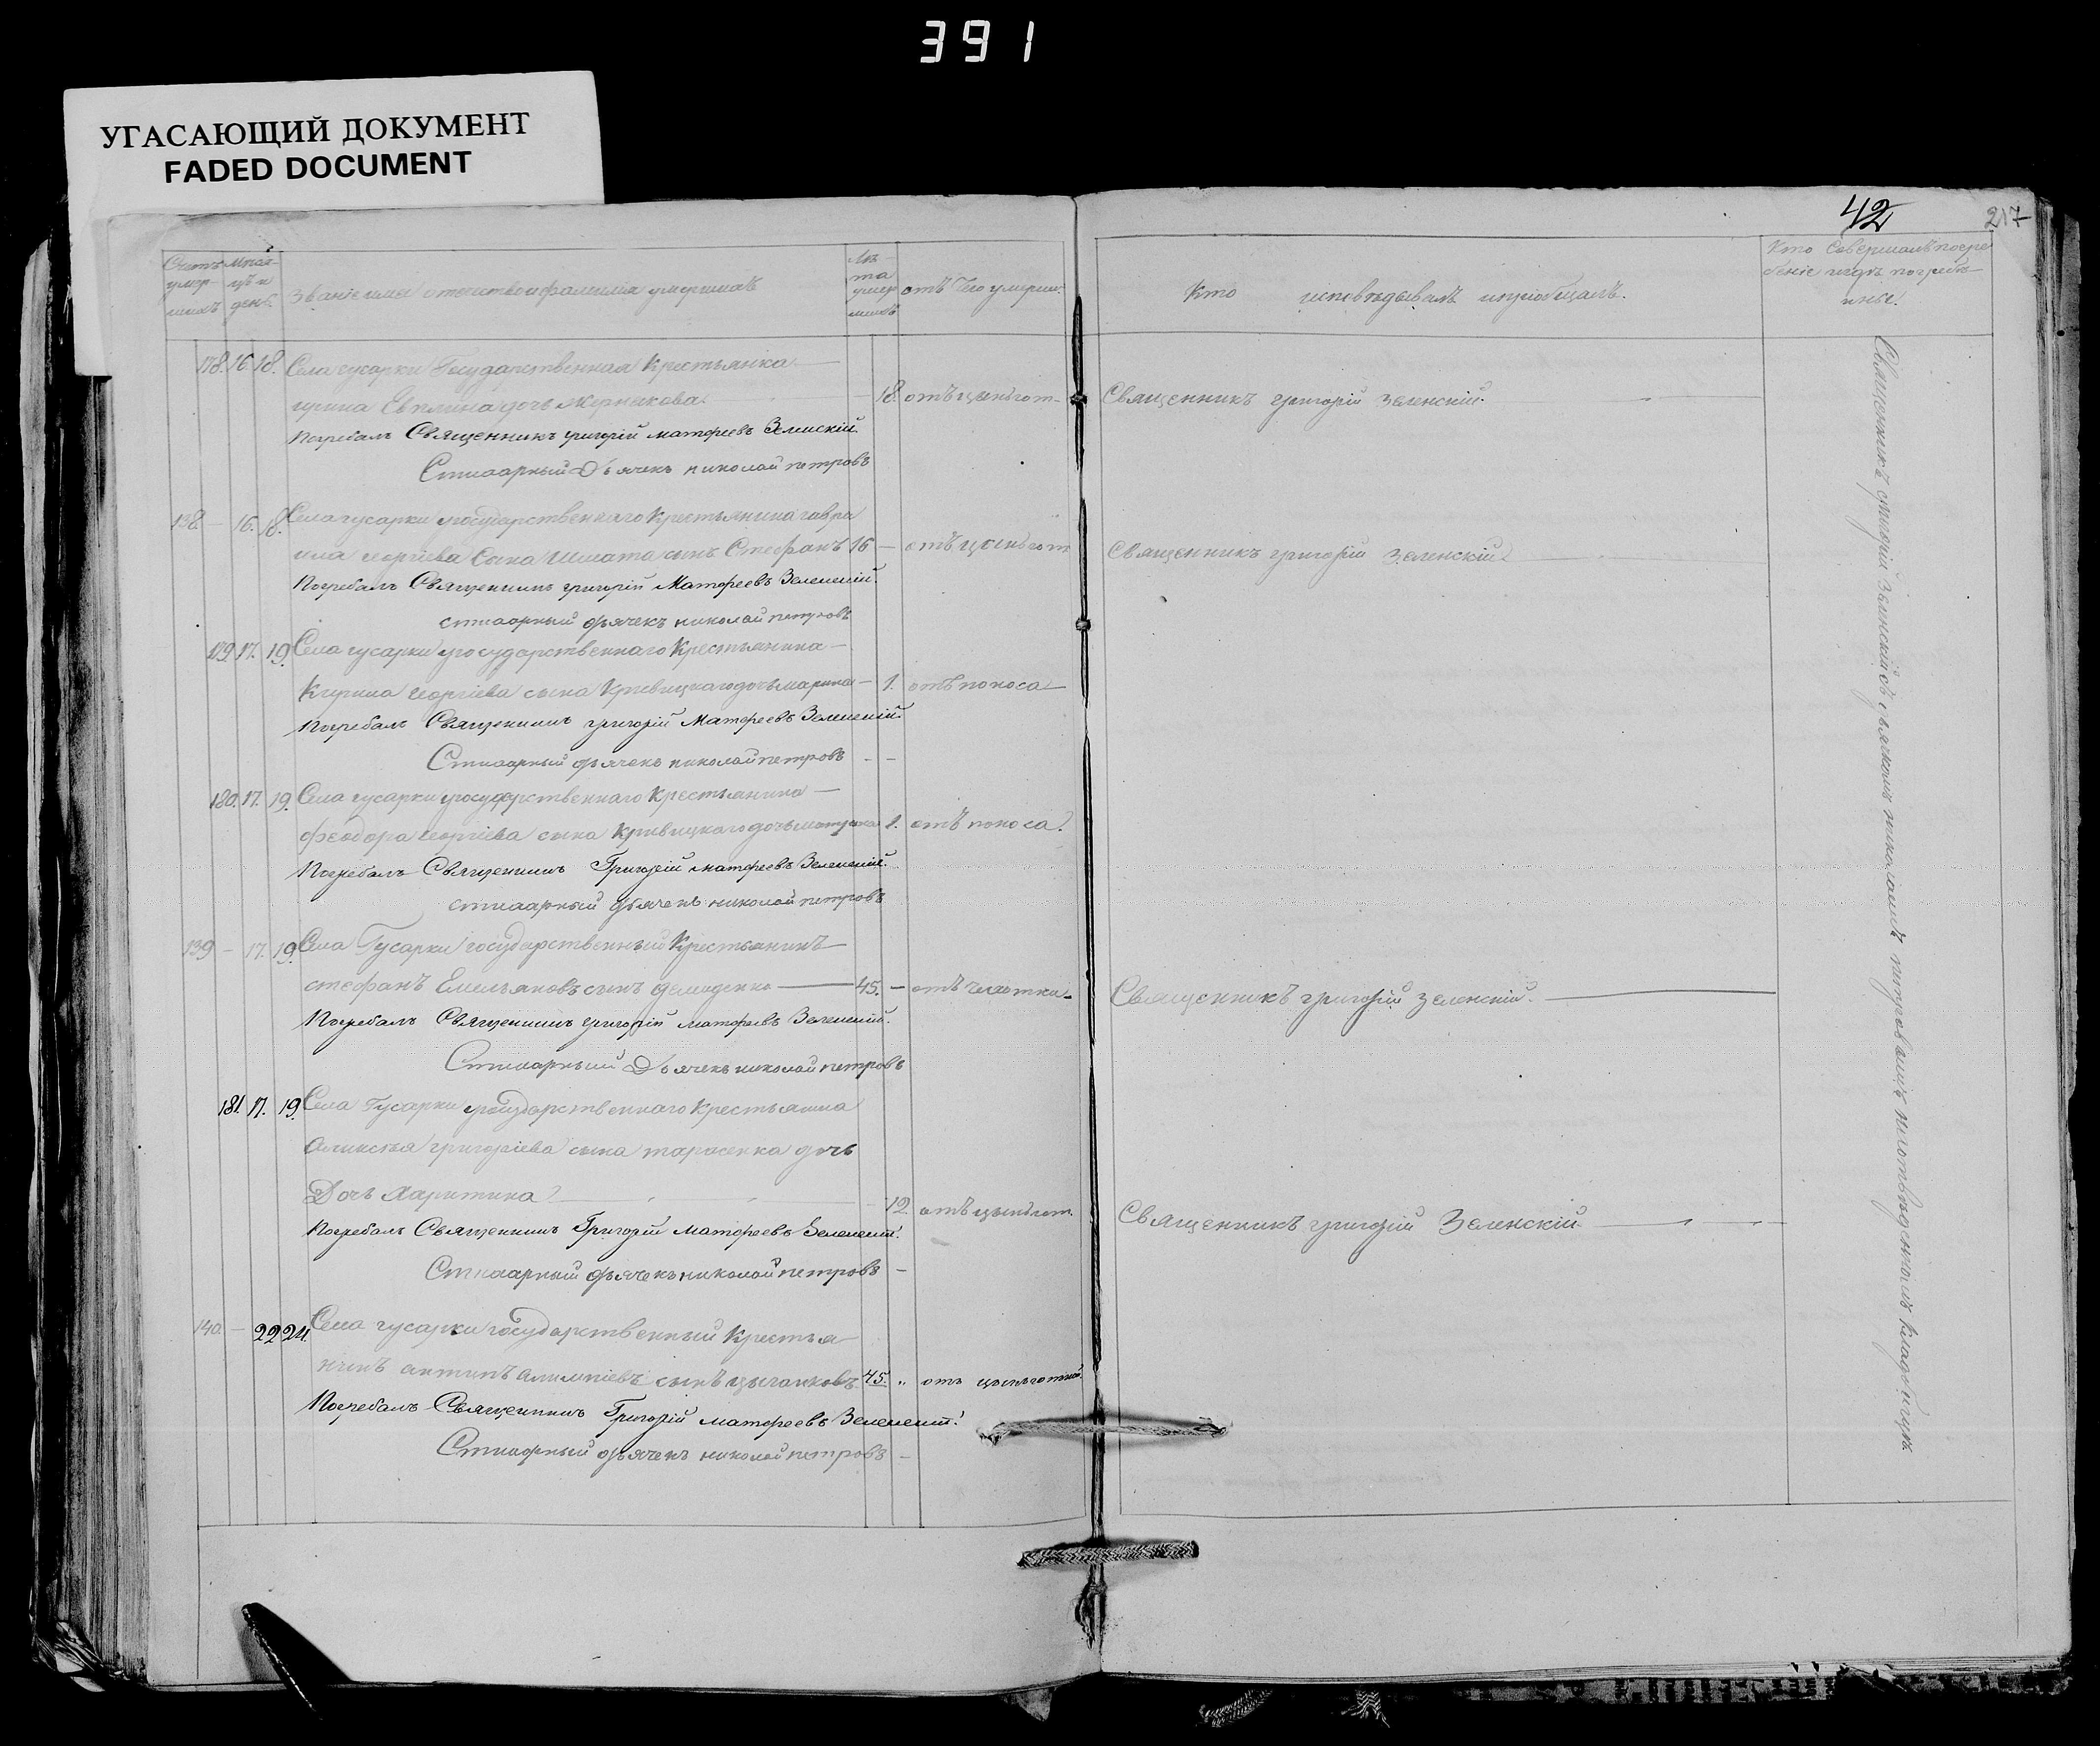 391
УГАСАЮЩИЙ ДОКУМЕНТ
FADED DOCUMENT
42
217
Счетъ умер-шихъ
Мѣся-цъ и день
Званіе имя отечество и фамилия умершихъ
Лѣ-та умер-шихъ
отъ чего умерли
Кто исповѣдывалъ и пріобщалъ.
Кто Совершалъ погре
беніе и гдѣ погребе-
ны.
178. 16. 18. Села гусарки Государственная Крестьянка
дочь 18. отъ цынгот- Священникъ григорій Зеленскій.
Погребалъ Священникъ григорій матфеевъ Зеленскій.
Стихарный Дьячекъ николай петровъ
138 — 16. 18. Села гусарки государственнаго Крестьянина гаврі
ила георгіева Сына сынъ Стефанъ 16 — отъ цынгот Священникъ григорій Зеленскій
Погребалъ Священникъ григорій Матфеевъ Зеленскій.
стихарный дьячекъ николай петровъ
179 17. 19. Села гусарки государственнаго Крестьянина —
георгіева сына Кривицкаго дочь марина — 1. отъ поноса —
Погребалъ Священникъ григорій Матфеевъ Зеленскій.
Стихарный дьячекъ николай петровъ - -
180. 17. 19. Села гусарки государственнаго Крестьянина —
феодора георгіева сына Кривицкаго дочь 1. отъ поноса.
Погребалъ Священникъ Григорій матфеевъ Зеленскій.
стихарный дьячекъ николай петровъ
139 — 17. 19. Села Гусарки государственный Крестьянинъ —
стефанъ Емельяновъ сынъ демиденко — 45. — отъ чехотки — Священникъ григорій Зеленскій.
Погребалъ Священникъ григорій матфеевъ Зеленскій.
Стихарный Дьячекъ николай петровъ
181. 17. 19. Села Гусарки государственнаго Крестьянина
григоріева сына тарасенка дочь
Дочь Харитина — 12 отъ цынгот. Священникъ григорій Зеленскій
Погребалъ Священникъ Григорій матфеевъ Зеленскій.
Стихарный дьячекъ николай петровъ —
140. — 22 24. Села гусарки государственный Крестья
нинъ антипъ сынъ цыганковъ. 45. „ отъ цынготной
Погребалъ Священникъ Григорій матфеевъ Зеленскій.
Стихарный дьячекъ николай петровъ —
Священникъ григорій Зеленскій съ дьячкомъ николаемъ петровымъ на отведенномъ кладбищѣ